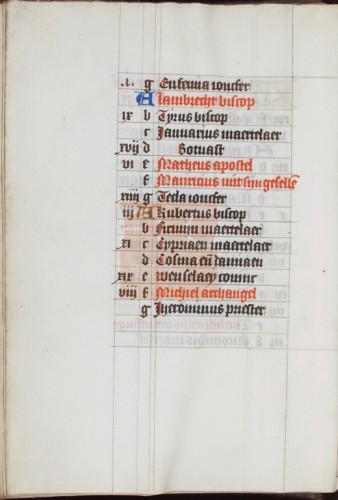 .i. g Eufemia ioncfer
A lambrecht biscop
ix b Tyrus biscop
c Januarius maertelaer
xvij d Sotuast
vi e Matheus apostel
f Mauricius mit sijn geselle
xiiij g Tecla ioncfer
iij A Rubertus biscop
b Firmijn maertelaer
xi c Cypriaen maertelaer
d Cosma en damiaen
xix e wenselaey coninc
viij f Michiel archangel
g Jheronimus priester